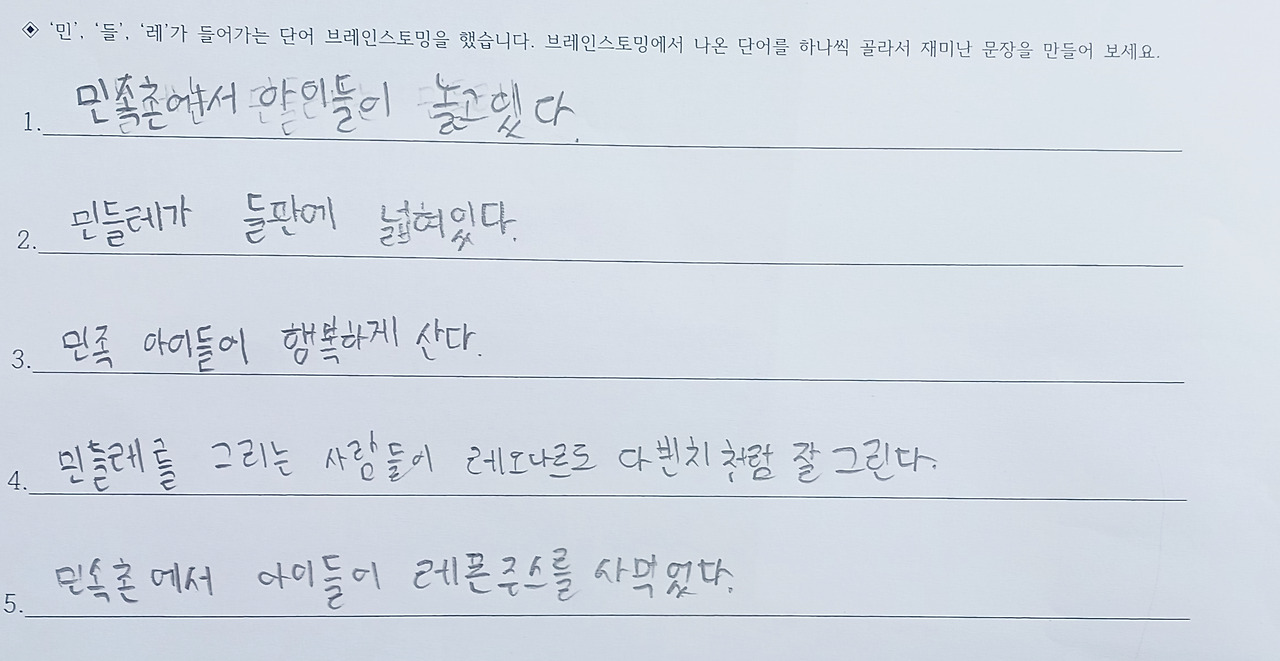 ◈ ‘민’, ‘들’, ‘레’가 들어가는 단어 브레인스토밍을 했습니다. 브레인스토밍에서 나온 단어를 하나씩 골라서 재미난 문장을 만들어 보세요.
1. 민속촌에서 아이들이 놀고했다.
2. 민들레가 들판에 넓혀있다.
3. 민족 아이들이 행복하게 산다.
4. 민들레를 그리는 사람들이 레오나르도 다빈치처럼 잘 그린다.
5. 민속촌에서 아이들이 레몬주스를 사먹었다.